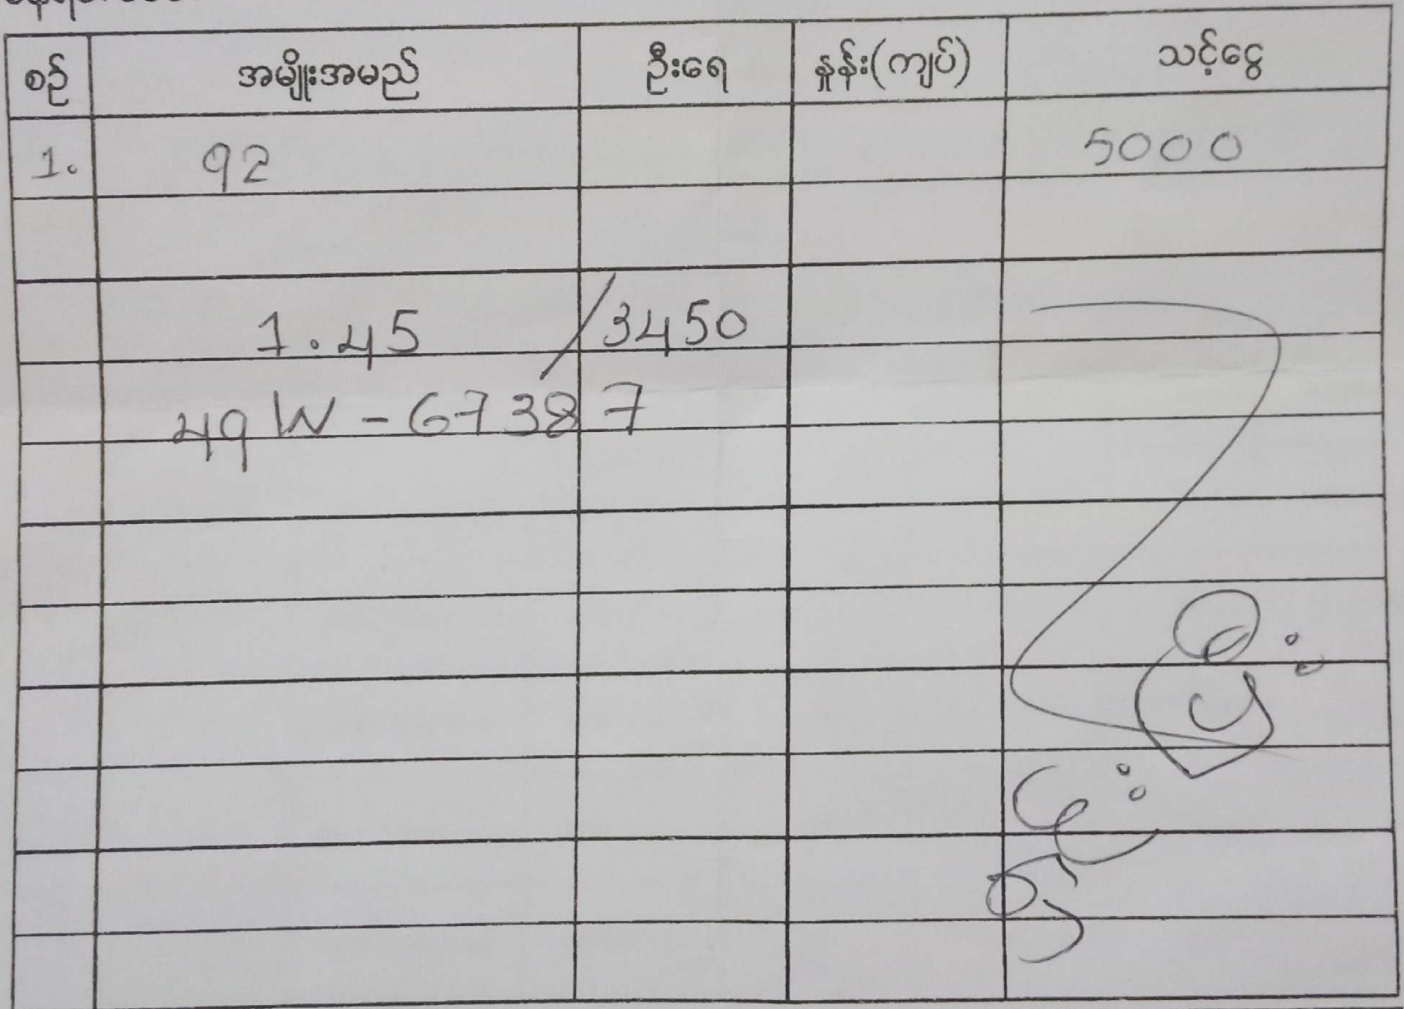 စဉ် အမျိုးအမည် ဦးရေ နှုန်း(ကျပ်) သင့်ငွေ
1. 92 5000
1.45 / 3450
49W - 67387